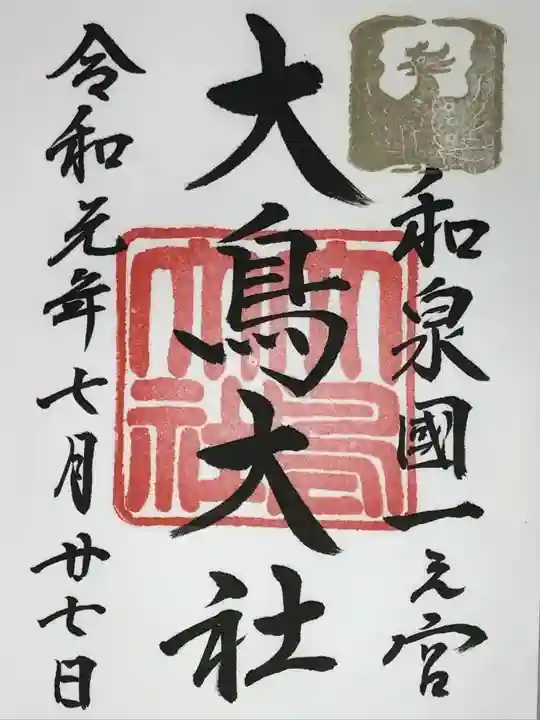 和泉國一之宮
大鳥大社
大鳥大社
令和元年七月廿七日